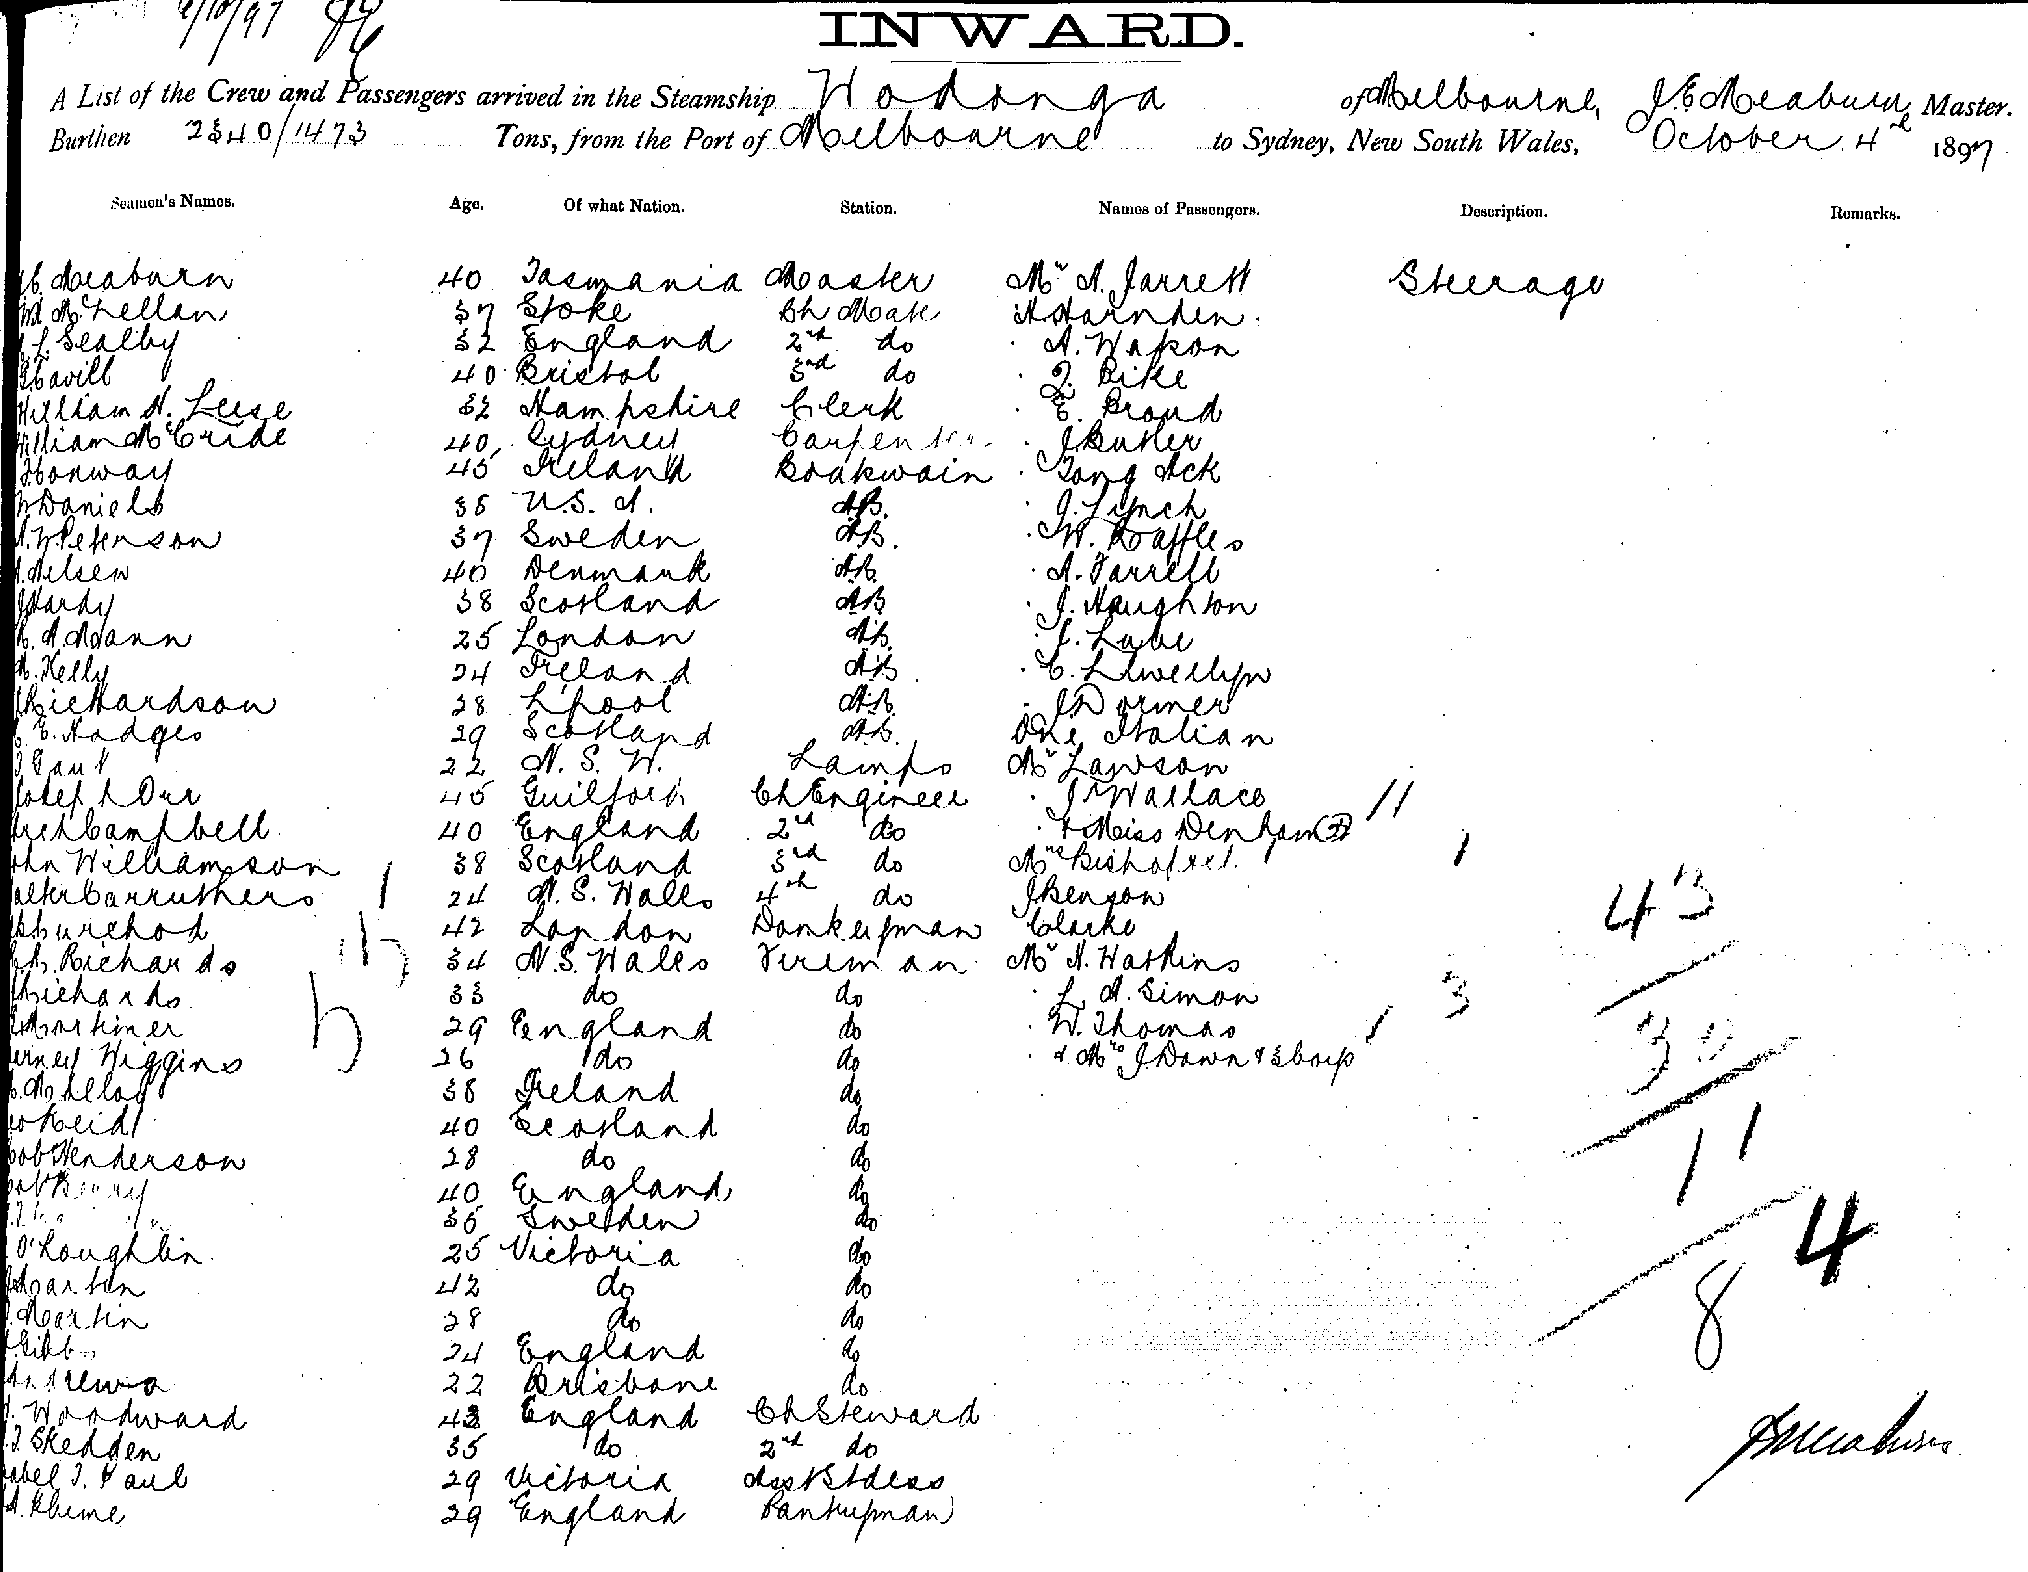 4/10/97
INWARD.
A List of the Crew and Passengers arrived in the Steamship Wodonga of Melbourne, J. E. Meaburn, Master.
Burthen 2340/1473 Tons, from the Port of Melbourne to Sydney, New South Wales, October 4th 1897
Seamen's Names. Age. Of what Nation. Station. Names of Passengers. Description. Remarks.
Meaburn 40 Tasmania Master Mr A. Jarrett Steerage
McLellan 37 Stoke Ch Mate Harnden
Sealby 32 England 2nd do A. Watson
40 Bristol 3rd do Pike
William H. Leese 32 Hampshire Clerk E. Proud
William McCride 40 Sydney Carpenter J Butler
Conway 45 Ireland Boatswain Tong Ack
Daniels 35 U.S. A. AB. J. Lynch
Peterson 37 Sweden AB. W. Raffles
Nilsen 40 Denmark AB. A. Farrell
Hardy 38 Scotland AB J. Naughton
A. Mann 25 London AB.
Kelly 24 Ireland AB. C. Llwellyn
Richardson 28 L'pool AB. J Dormer
E. Hodges 29 Scotland AB. One Italian
22 N. S. W. Lamps Mr Lawson
Joseph Orr 45 Guilford Ch Engineer J Wallace 11
Campbell 40 England 2nd do + Miss Denham
John Williamson 38 Scotland 3rd do Mrs Bishop 1
Carruthers 1 24 N. S. Wales 4th do J Benson 43
42 London Donkeyman Clarke
Richards 34 N. S. Wales Fireman Mr H. Watkins
Richards 33 do do L. A. Simon 3
Mortimer 29 England do W. Thomas 1 30
Wiggins 26 do do + Mrs J. Dawn + 3 boys
Malloy 38 Ireland do
Reid 40 Scotland do 11
Henderson 28 do do
40 England do
35 Sweden do 4
O'Loughlin 25 Victoria do
Martin 42 do do 8
Martin 28 do do
24 England do
Andrews 22 Brisbane do
Woodward 43 England Ch Steward
Skedden 35 do 2nd do
T. Paul 29 Victoria Asst Stdess
29 England Pantryman